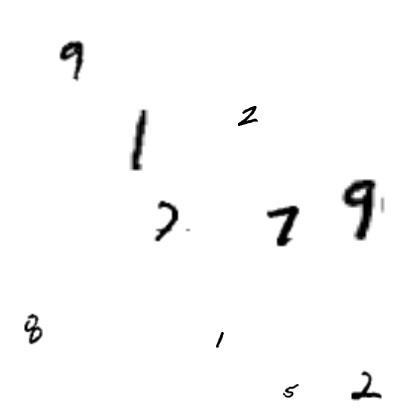 9
1 2
7 7 9
8 1
5 2